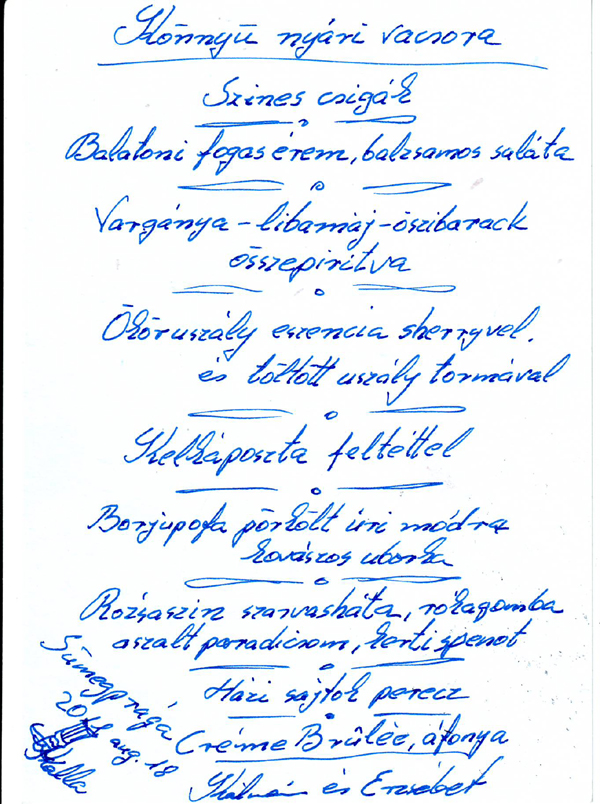 Könnyü nyári vacsora
Szines csigák
Balatoni fogas érem, balzsamos saláta
Vargánya-libamáj-öszibarack
összepiritva
Ököruszály eszencia sherryvel.
és töltött uszály tormával
Kelkáposzta feltéttel
Borjupofa pörkölt úri módra
kovászos uborka
Rózsaszin szarvasháta, rókagomba
aszalt paradicsom, kerti spenót
Házi sajtok perecz
Créme Brûlée, áfonya
Kálmán és Erzsébet
Sümegprága
aug. 18
Kalla